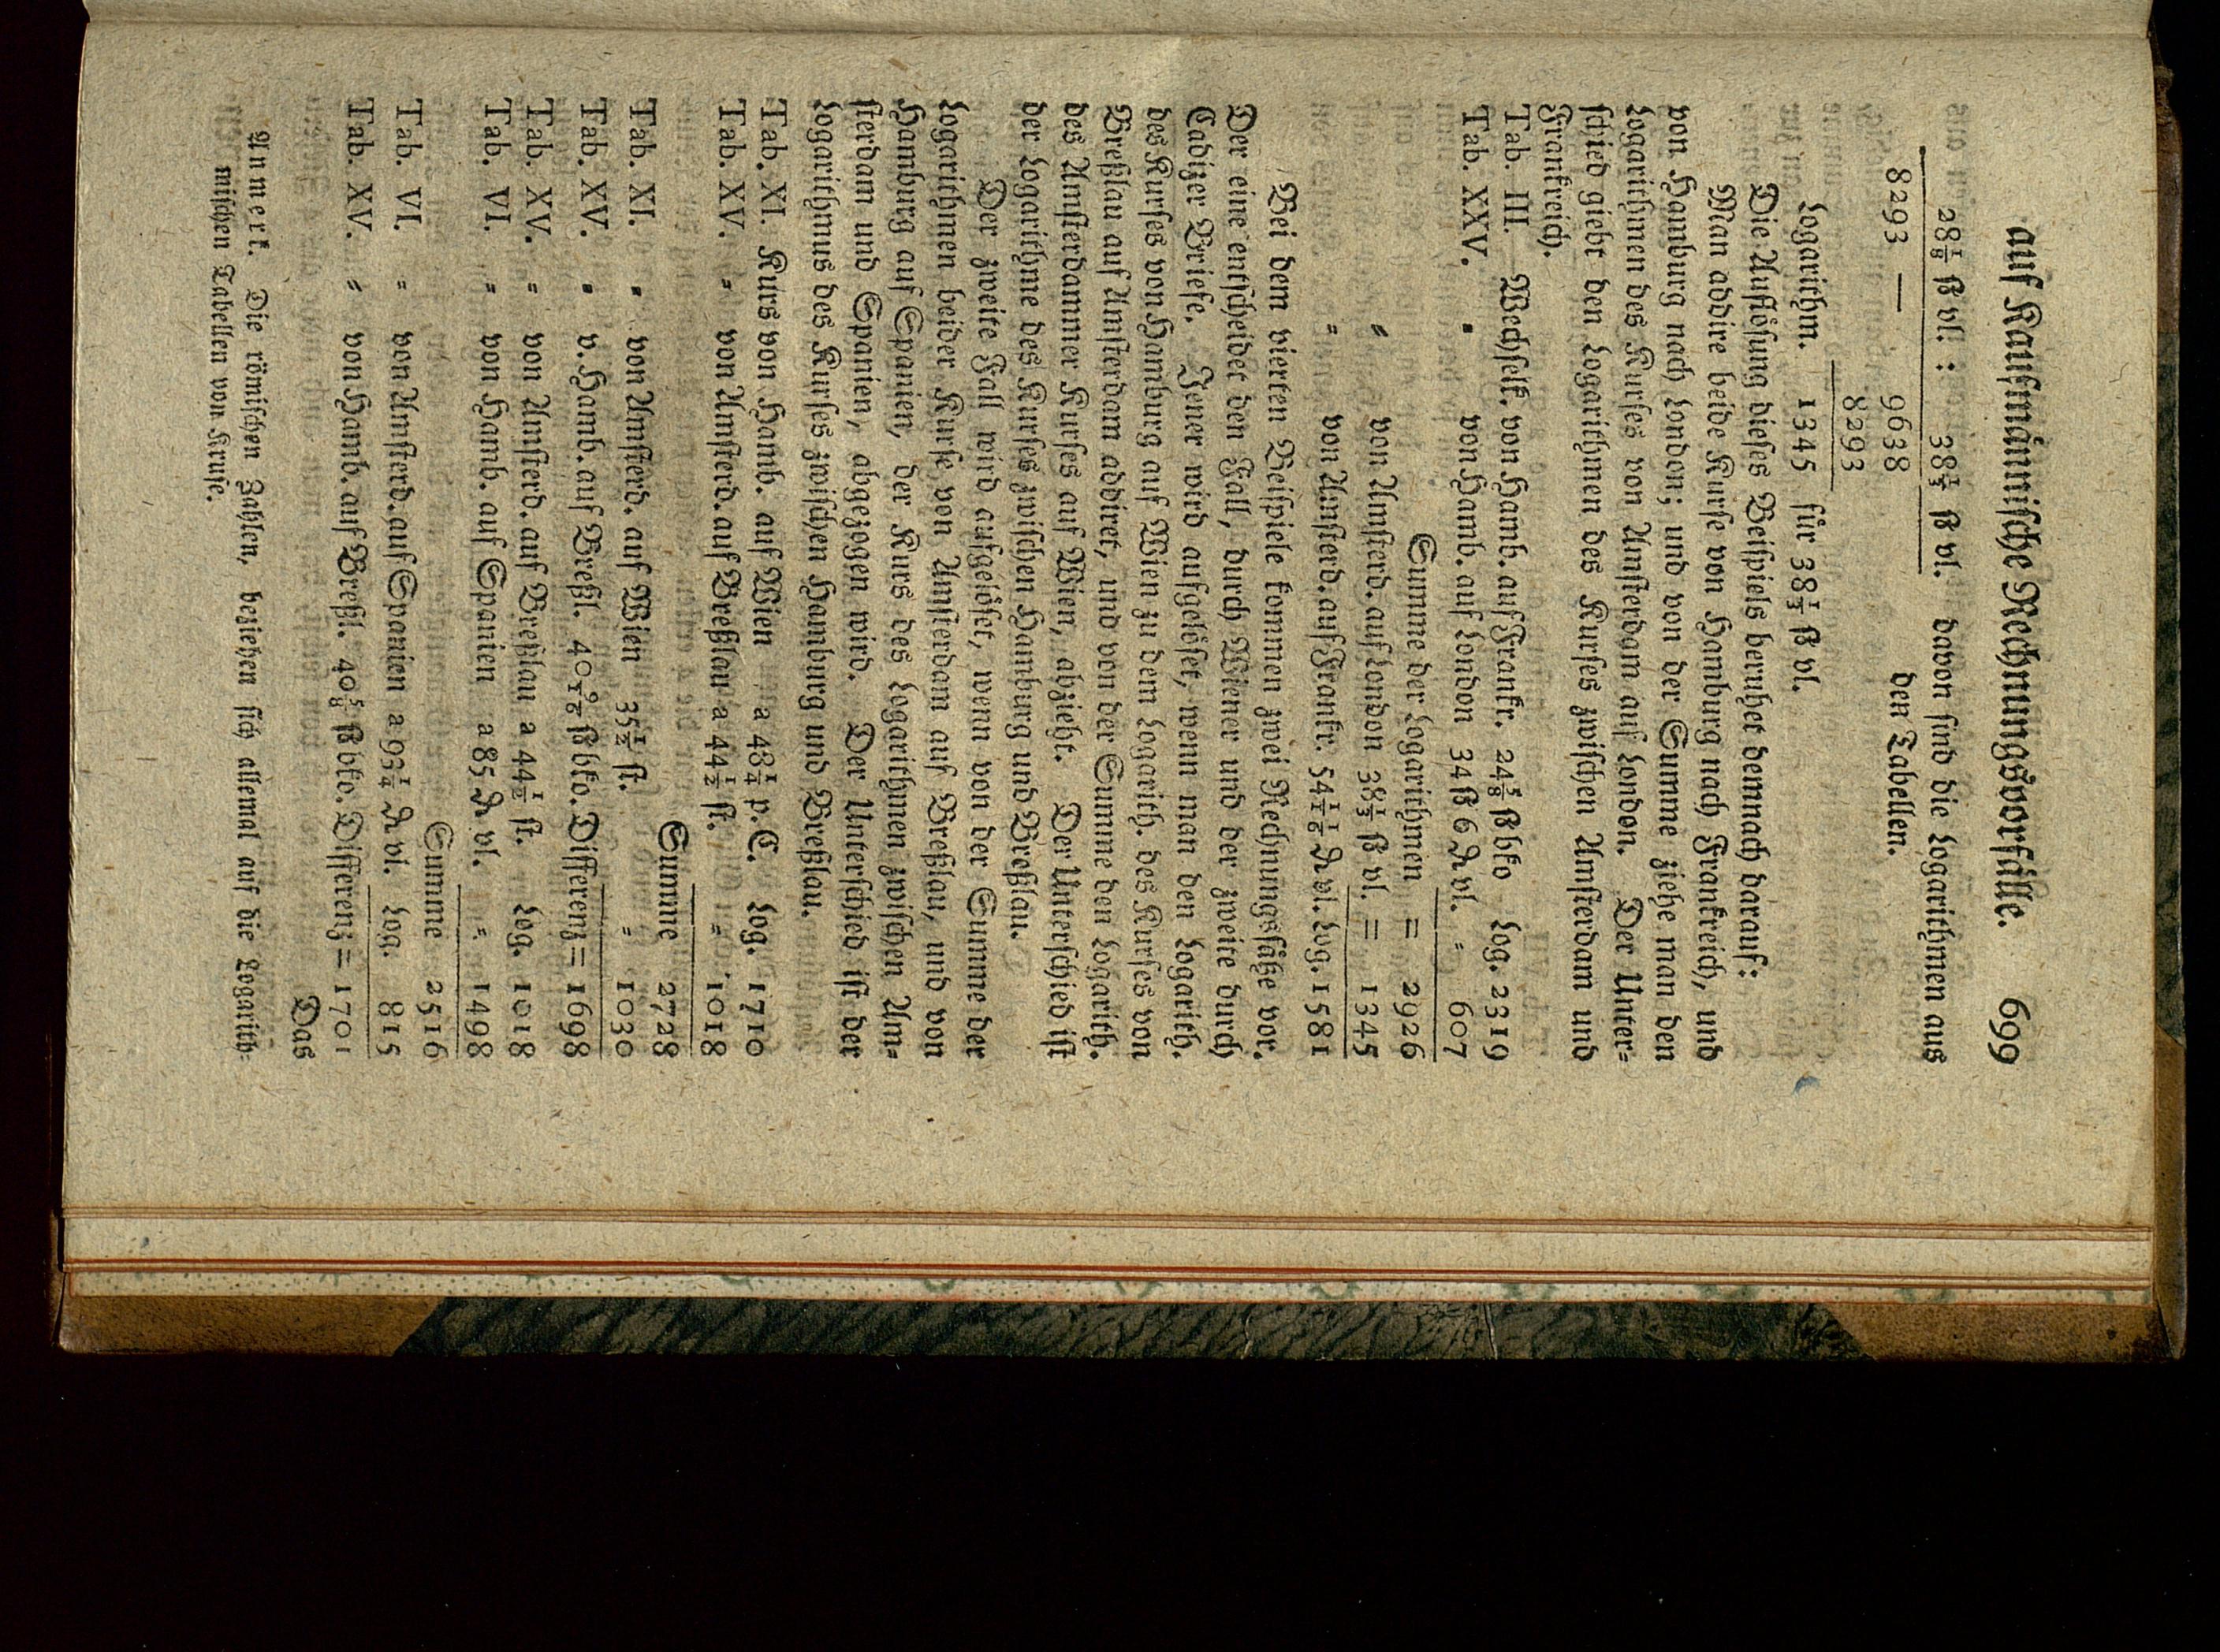 auf Kaufmännische Rechnungsvorfälle. 699
28⅛ ß vl. : 38⅓ ß vl. davon sind die Logarithmen aus
8293 — 9638 den Tabellen.
8293
Logarithm. 1345 für 38⅓ ß vl.
Die Auflösung dieses Beispiels beruhet demnach darauf:
Man addire beide Kurse von Hamburg nach Frankreich, und
von Hamburg nach London; und von der Summe ziehe man den
Logarithmen des Kurses von Amsterdam auf London. Der Unter-
schied giebt den Logarithmen des Kurses zwischen Amsterdam und
Frankreich.
Tab. III. Wechselk. von Hamb. auf Frankr. 24⅝ ß bko Log. 2319
Tab. XXV. " von Hamb. auf London 34 ß 6 ₰ vl. " 607
Summe der Logarithmen = 2926
" von Amsterd. auf London 38⅓ ß vl. = 1345
" von Amsterd. auf Frankr. 54 1/16 ₰ vl. Log. 1581
Bei dem vierten Beispiele kommen zwei Rechnungssätze vor.
Der eine entscheidet den Fall, durch Wiener und der zweite durch
Cadixer Briefe. Jener wird aufgelöset, wenn man den Logarith.
des Kurses von Hamburg auf Wien zu dem Logarith. des Kurses von
Breßlau auf Amsterdam addiret, und von der Summe den Logarith.
des Amsterdammer Kurses auf Wien, abzieht. Der Unterschied ist
der Logarithme des Kurses zwischen Hamburg und Breßlau.
Der zweite Fall wird aufgelöset, wenn von der Summe der
Logarithmen beider Kurse von Amsterdam auf Breßlau, und von
Hamburg auf Spanien, der Kurs des Logarithmen zwischen Am-
sterdam und Spanien, abgezogen wird. Der Unterschied ist der
Logarithmus des Kurses zwischen Hamburg und Breßlau.
Tab. XI. Kurs von Hamb. auf Wien a 48¼ p. C. Log. 1710
Tab. XV. " von Amsterd. auf Breßlau a 44½ st. " 1018
Summe 2728
Tab. XI. " von Amsterd. auf Wien 35½ st. " 1030
Tab. XV. " v. Hamb. auf Breßl. 40 9/16 ß bko. Differenz = 1698
Tab. XV. " von Amsterd. auf Breßlau a 44½ st. Log. 1018
Tab. VI. " von Hamb. auf Spanien a 85 ₰ vl. " 1498
Summe 2516
Tab. VI. " von Amsterd. auf Spanien a 93¼ ₰ vl. Log. 815
Tab. XV. " von Hamb. auf Breßl. 40⅝ ß bko. Differenz = 1701
Das
Anmerk. Die römischen Zahlen, beziehen sich allemal auf die Logarith-
mischen Tabellen von Kruse.